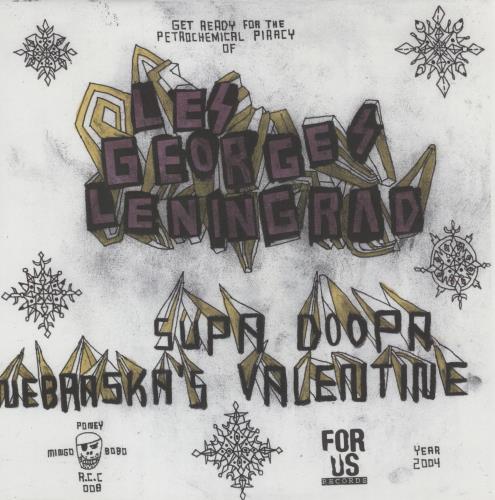 GET READY FOR THE
PETROCHEMICAL PIRACY
OF
LES
GEORGES
LENINGRAD
SUPA DOOPA
NEBRASKA'S VALENTINE
PONEY
MINGO BOBO
R.C.C
008
FOR
US
RECORDS
YEAR
2004